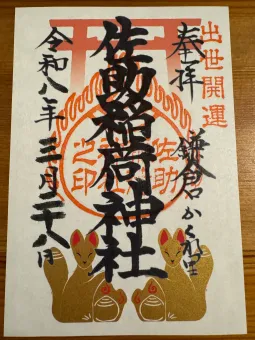 出世開運
奉拝
鎌倉 かくれ里
佐助稲荷神社
佐助
之印
令和八年三月二十八日